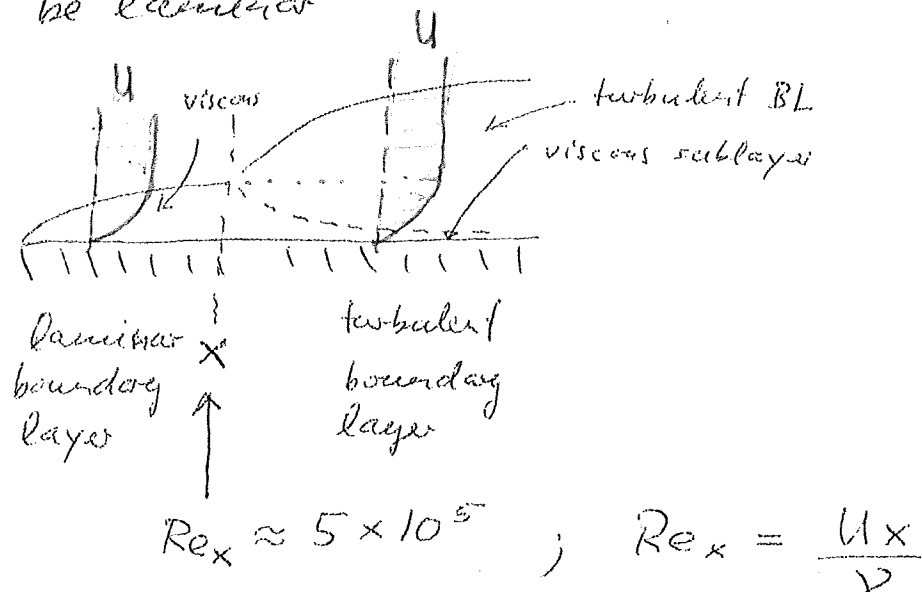 be laminar
U
U
viscous
turbulent BL
viscous sublayer
laminar
boundary
layer
x
turbulent
boundary
layer
Re_x ≈ 5 × 10^5 ; Re_x = Ux/ν